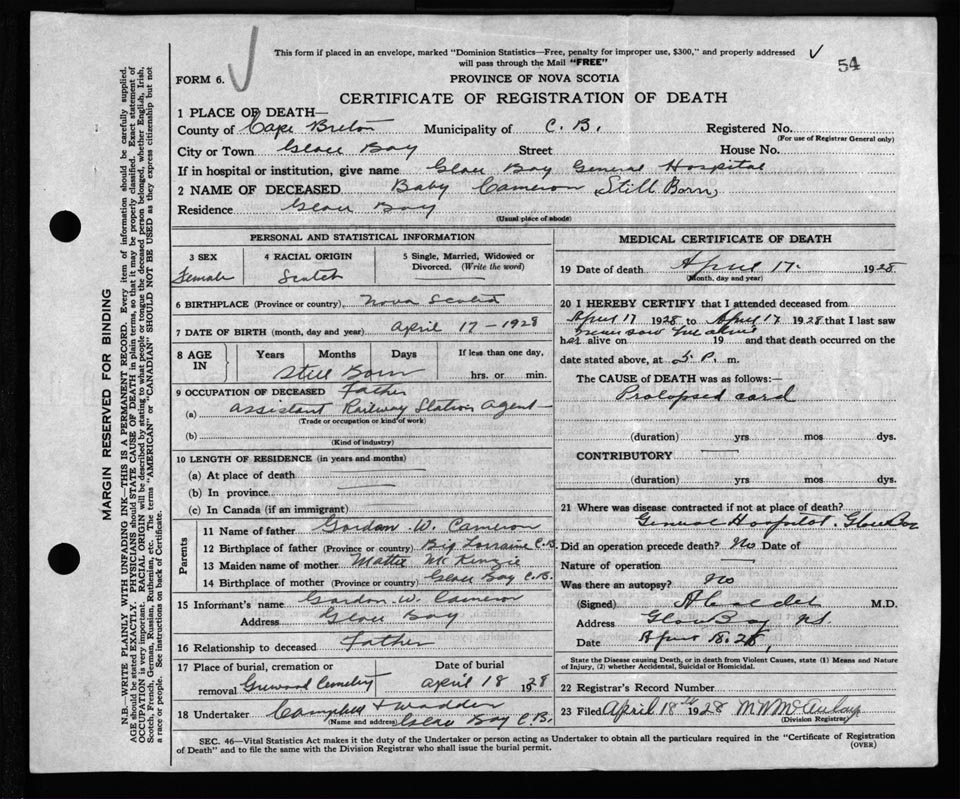 This form if placed in an envelope, marked "Dominion Statistics—Free, penalty for improper use, $300," and properly addressed
will pass through the Mail "FREE"
54
FORM 6.
PROVINCE OF NOVA SCOTIA
CERTIFICATE OF REGISTRATION OF DEATH
1 PLACE OF DEATH—
County of Cape Breton Municipality of C. B. Registered No.
(For use of Registrar General only)
City or Town Glace Bay Street House No.
If in hospital or institution, give name Glace Bay General Hospital
2 NAME OF DECEASED Baby Cameron (Still Born)
Residence Glace Bay
(Usual place of abode)
PERSONAL AND STATISTICAL INFORMATION
3 SEX Female
4 RACIAL ORIGIN Scotch
5 Single, Married, Widowed or Divorced. (Write the word)
6 BIRTHPLACE (Province or country) Nova Scotia
7 DATE OF BIRTH (month, day and year) April 17 - 1928
8 AGE IN Years Months Days If less than one day,
Still Born hrs. or min.
9 OCCUPATION OF DECEASED Father
(a) Assistant Railway Station Agent
(Trade or occupation or kind of work)
(b)
(Kind of industry)
10 LENGTH OF RESIDENCE (in years and months)
(a) At place of death
(b) In province
(c) In Canada (if an immigrant)
Parents
11 Name of father Gordon W. Cameron
12 Birthplace of father (Province or country) Big Lorraine C.B.
13 Maiden name of mother McKenzie
14 Birthplace of mother (Province or country) Glace Bay C.B.
15 Informant's name Gordon W. Cameron
Address Glace Bay
16 Relationship to deceased Father
17 Place of burial, cremation or
removal Cemetery
Date of burial
April 18 1928
18 Undertaker Campbell &
(Name and address) Glace Bay C.B.
MEDICAL CERTIFICATE OF DEATH
19 Date of death April 17. 1928
(Month, day and year)
20 I HEREBY CERTIFY that I attended deceased from
April 17 1928 to April 17 1928 that I last saw
never saw alive
her alive on 19 and that death occurred on the
date stated above, at 5. P. m.
The CAUSE of DEATH was as follows:—
Prolapsed cord
(duration) yrs mos dys.
CONTRIBUTORY
(duration) yrs. mos dys.
21 Where was disease contracted if not at place of death?
General Hospital. Glace Bay
Did an operation precede death? No Date of
Nature of operation
Was there an autopsy? No
(Signed) M.D.
Address Glace Bay NS
Date April 18. 28,
State the Disease causing Death, or in death from Violent Causes, state (1) Means and Nature
of Injury, (2) whether Accidental, Suicidal or Homicidal.
22 Registrar's Record Number
23 Filed April 18th 1928
(Division Registrar)
SEC. 46—Vital Statistics Act makes it the duty of the Undertaker or person acting as Undertaker to obtain all the particulars required in the "Certificate of Registration
of Death" and to file the same with the Division Registrar who shall issue the burial permit.
(OVER)
MARGIN RESERVED FOR BINDING
N.B.—WRITE PLAINLY WITH UNFADING INK—THIS IS A PERMANENT RECORD. Every item of information should be carefully supplied.
AGE should be stated EXACTLY. PHYSICIANS should STATE CAUSE OF DEATH in plain terms, so that it may be properly classified. Exact statement of
OCCUPATION is very important. RACIAL ORIGIN will be described by stating to what people or tongue the deceased person belonged, whether English, Irish,
Scotch, French, German, Russian, Ruthenian, etc. The terms "AMERICAN" or "CANADIAN" SHOULD NOT BE USED as they express citizenship but not
a race or people. See instructions on back of Certificate.